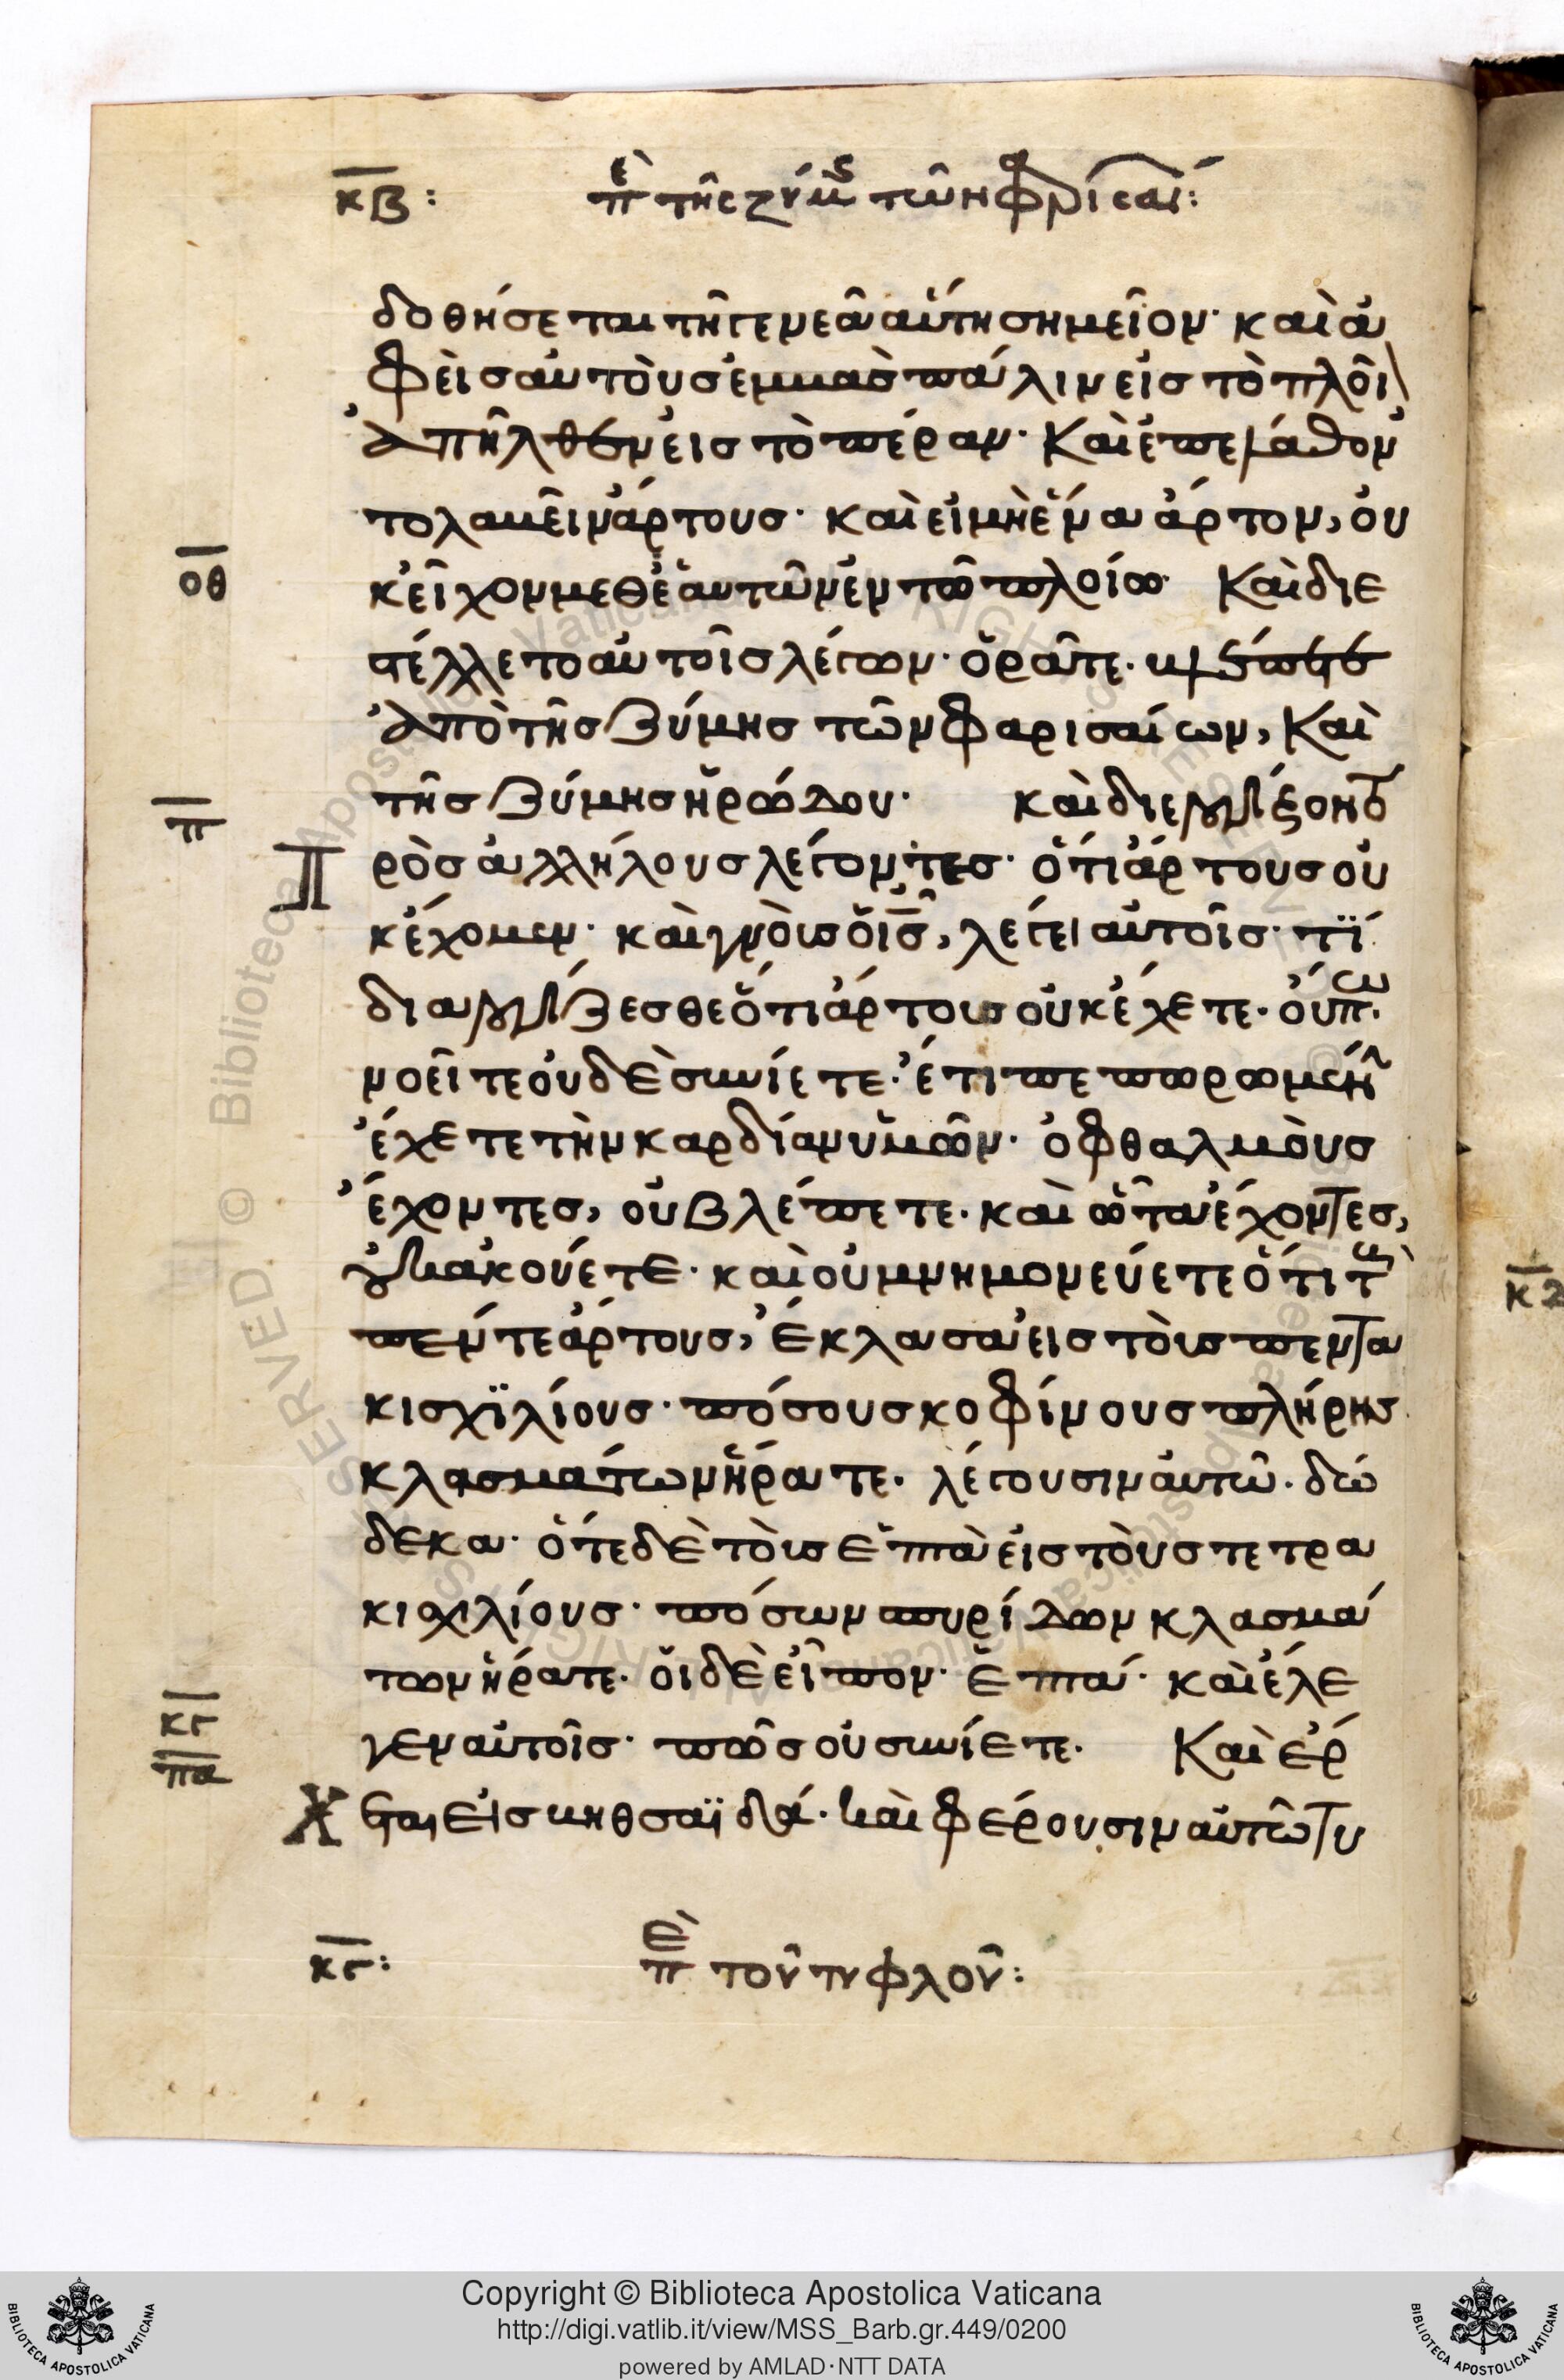 κβ: ἐπ τῆς ζύμης τῶν φαρισαί:
δοθήσεται τῆ γενεᾶ αὕτη σημεῖον· καὶ ἀ
φεὶς αὐτοὺς ἐμβὰς πάλιν εἰς τὸ πλοῖ
ἀπῆλθεν εἰς τὸ πέραν· Καὶ ἐπελάθον
το λαβεῖν ἄρτους· καὶ εἰ μὴ ἕνα ἄρτον, οὐ
οθ
κ εἶχον μεθ' ἑαυτῶν ἐν τῶ πλοίω· Καὶ διε
στέλλετο αὐτοῖς λέγων· ὁρᾶτε· βλέπετε
ἀπὸ τῆς ζύμης τῶν φαρισαίων, Καὶ
π
τῆς ζύμης ἡρώδου· καὶ διελογίζοντο
Π
ρὸς ἀλλήλους λέγοντες· ὅτι ἄρτους οὐ
κ ἔχομεν· καὶ γνοὺς ὁ ις, λέγει αὐτοῖς· τΐ
διαλογίζεσθε ὅτι ἄρτους οὐκ ἔχετε· οὔπω
νοεῖτε οὐδὲ συνίετε· ἔτι πεπωρωμένην
ἔχετε τὴν καρδίαν ὑμῶν· ὀφθαλμοὺς
ἔχοντες, οὐ βλέπετε· καὶ ὦτα ἔχοντες,
οὐκ ἀκούετε· καὶ οὐ μνημονεύετε ὅτι τοὺς
πέντε ἄρτους, ἔκλασα εἰς τοὺς πεντα
κισχϊλίους· πόσους κοφίνους πλήρης
κλασμάτων ἤρατε· λέγουσιν αὐτῶ· δώ
δεκα· ὅτε δὲ τοὺς ἑπτὰ εἰς τοὺς τετρα
κισχιλίους· πόσων σπυρίδων κλασμά
των ἤρατε· οἱ δὲ εἶπον· ἑπτά· καὶ ἔλε
κγ
γεν αὐτοῖς· πῶς οὐ συνίετε· Καὶ ἔρ
πα
χεται εἰς βηθσαϊδά· καὶ φέρουσιν αὐτῶ τυ
κγ: ἐπ τοῦ τυφλοῦ:
Copyright © Biblioteca Apostolica Vaticana
http://digi.vatlib.it/view/MSS_Barb.gr.449/0200
powered by AMLAD·NTT DATA